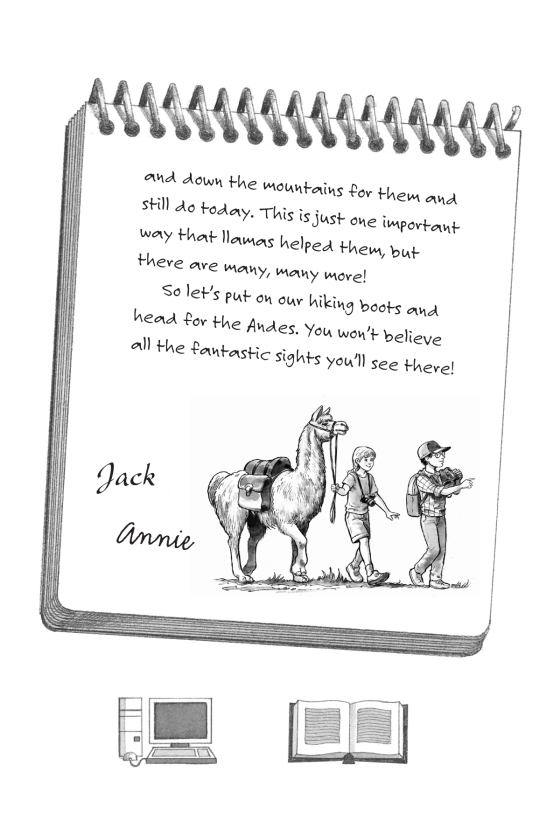 and down the mountains for them and
still do today. This is just one important
way that llamas helped them, but
there are many, many more!
So let's put on our hiking boots and
head for the Andes. You won't believe
all the fantastic sights you'll see there!
Jack
Annie